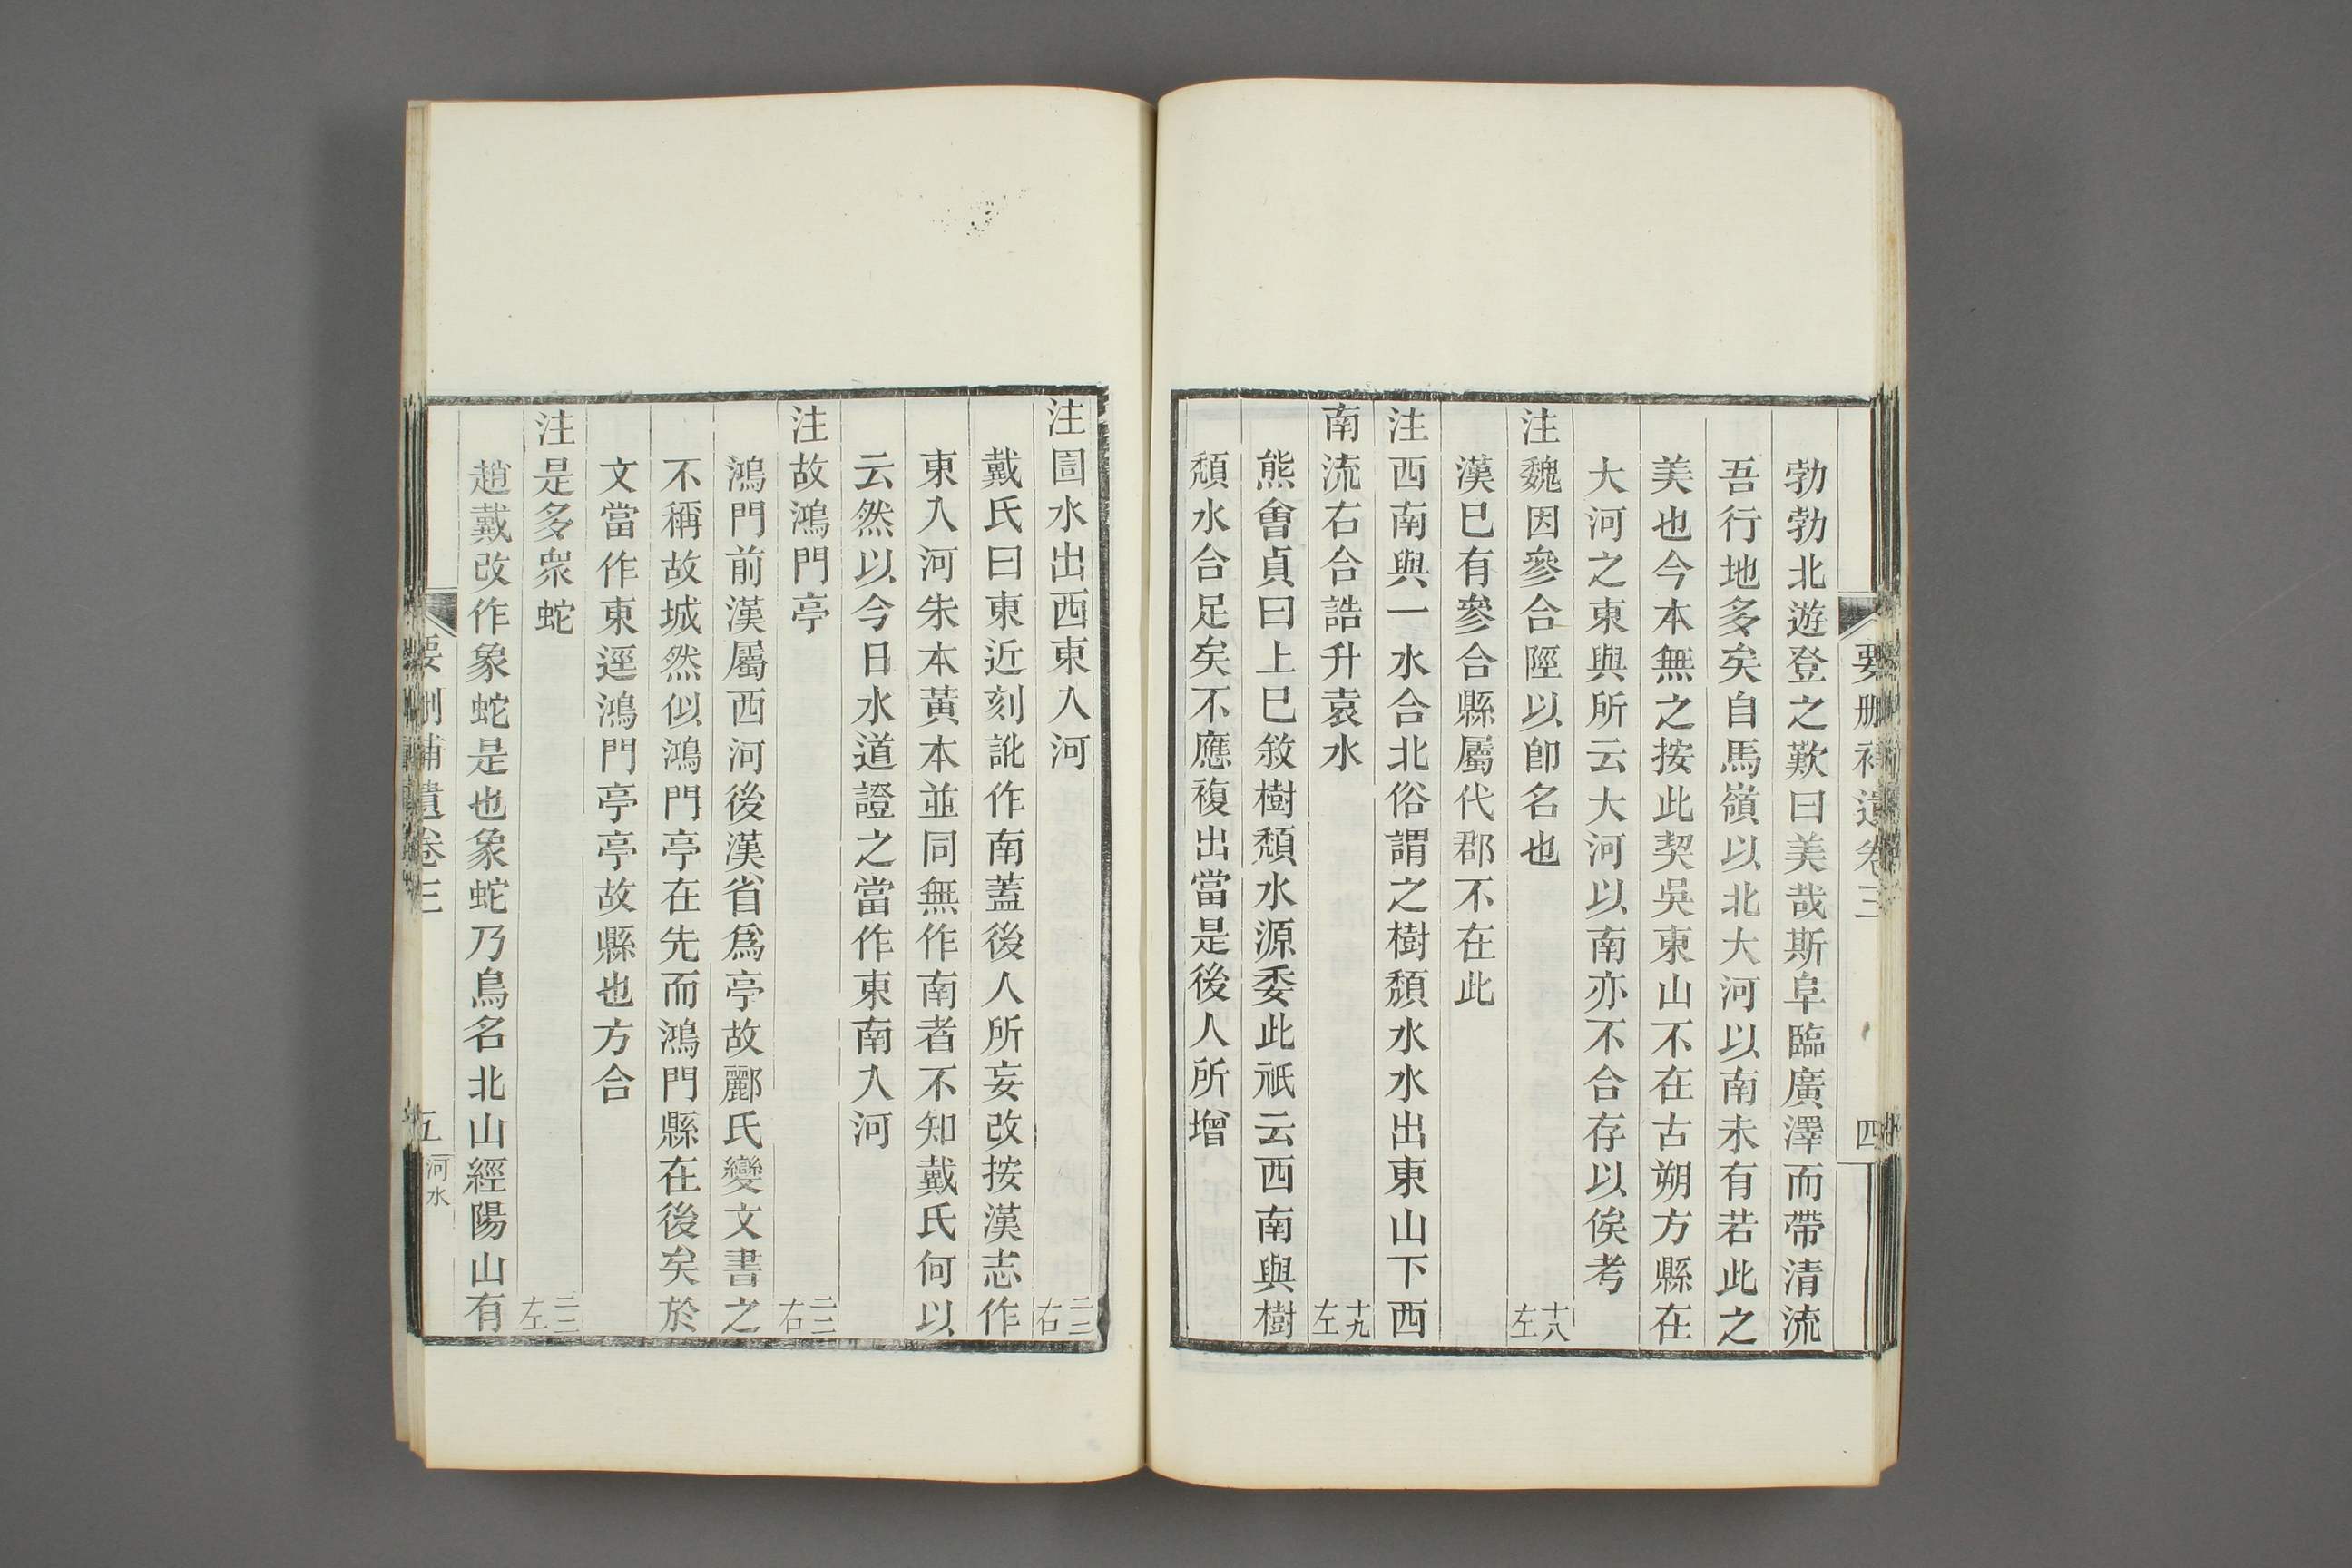 要刪補遺卷三
四
勃勃北遊登之歎曰美哉斯阜臨廣澤而帶清流
吾行地多矣自馬嶺以北大河以南未有若此之
美也今本無之按此契吳東山不在古朔方縣在
大河之東與所云大河以南亦不合存以俟考
注魏因參合陘以卽名也 十八左
漢巳有參合縣屬代郡不在此
注西南與一水合北俗謂之樹頹水水出東山下西
南流右合誥升袁水 十九左
熊會貞曰上巳敘樹頹水源委此祇云西南與樹
頹水合足矣不應複出當是後人所增
注圁水出西東入河 二三右
戴氏曰東近刻訛作南蓋後人所妄改按漢志作
東入河朱本黃本並同無作南者不知戴氏何以
云然以今日水道證之當作東南入河
注故鴻門亭 二三右
鴻門前漢屬西河後漢省爲亭故酈氏變文書之
不稱故城然似鴻門亭在先而鴻門縣在後矣於
文當作東逕鴻門亭亭故縣也方合
注是多衆蛇 二三左
趙戴改作象蛇是也象蛇乃鳥名北山經陽山有
要刪補遺卷三
五
河水